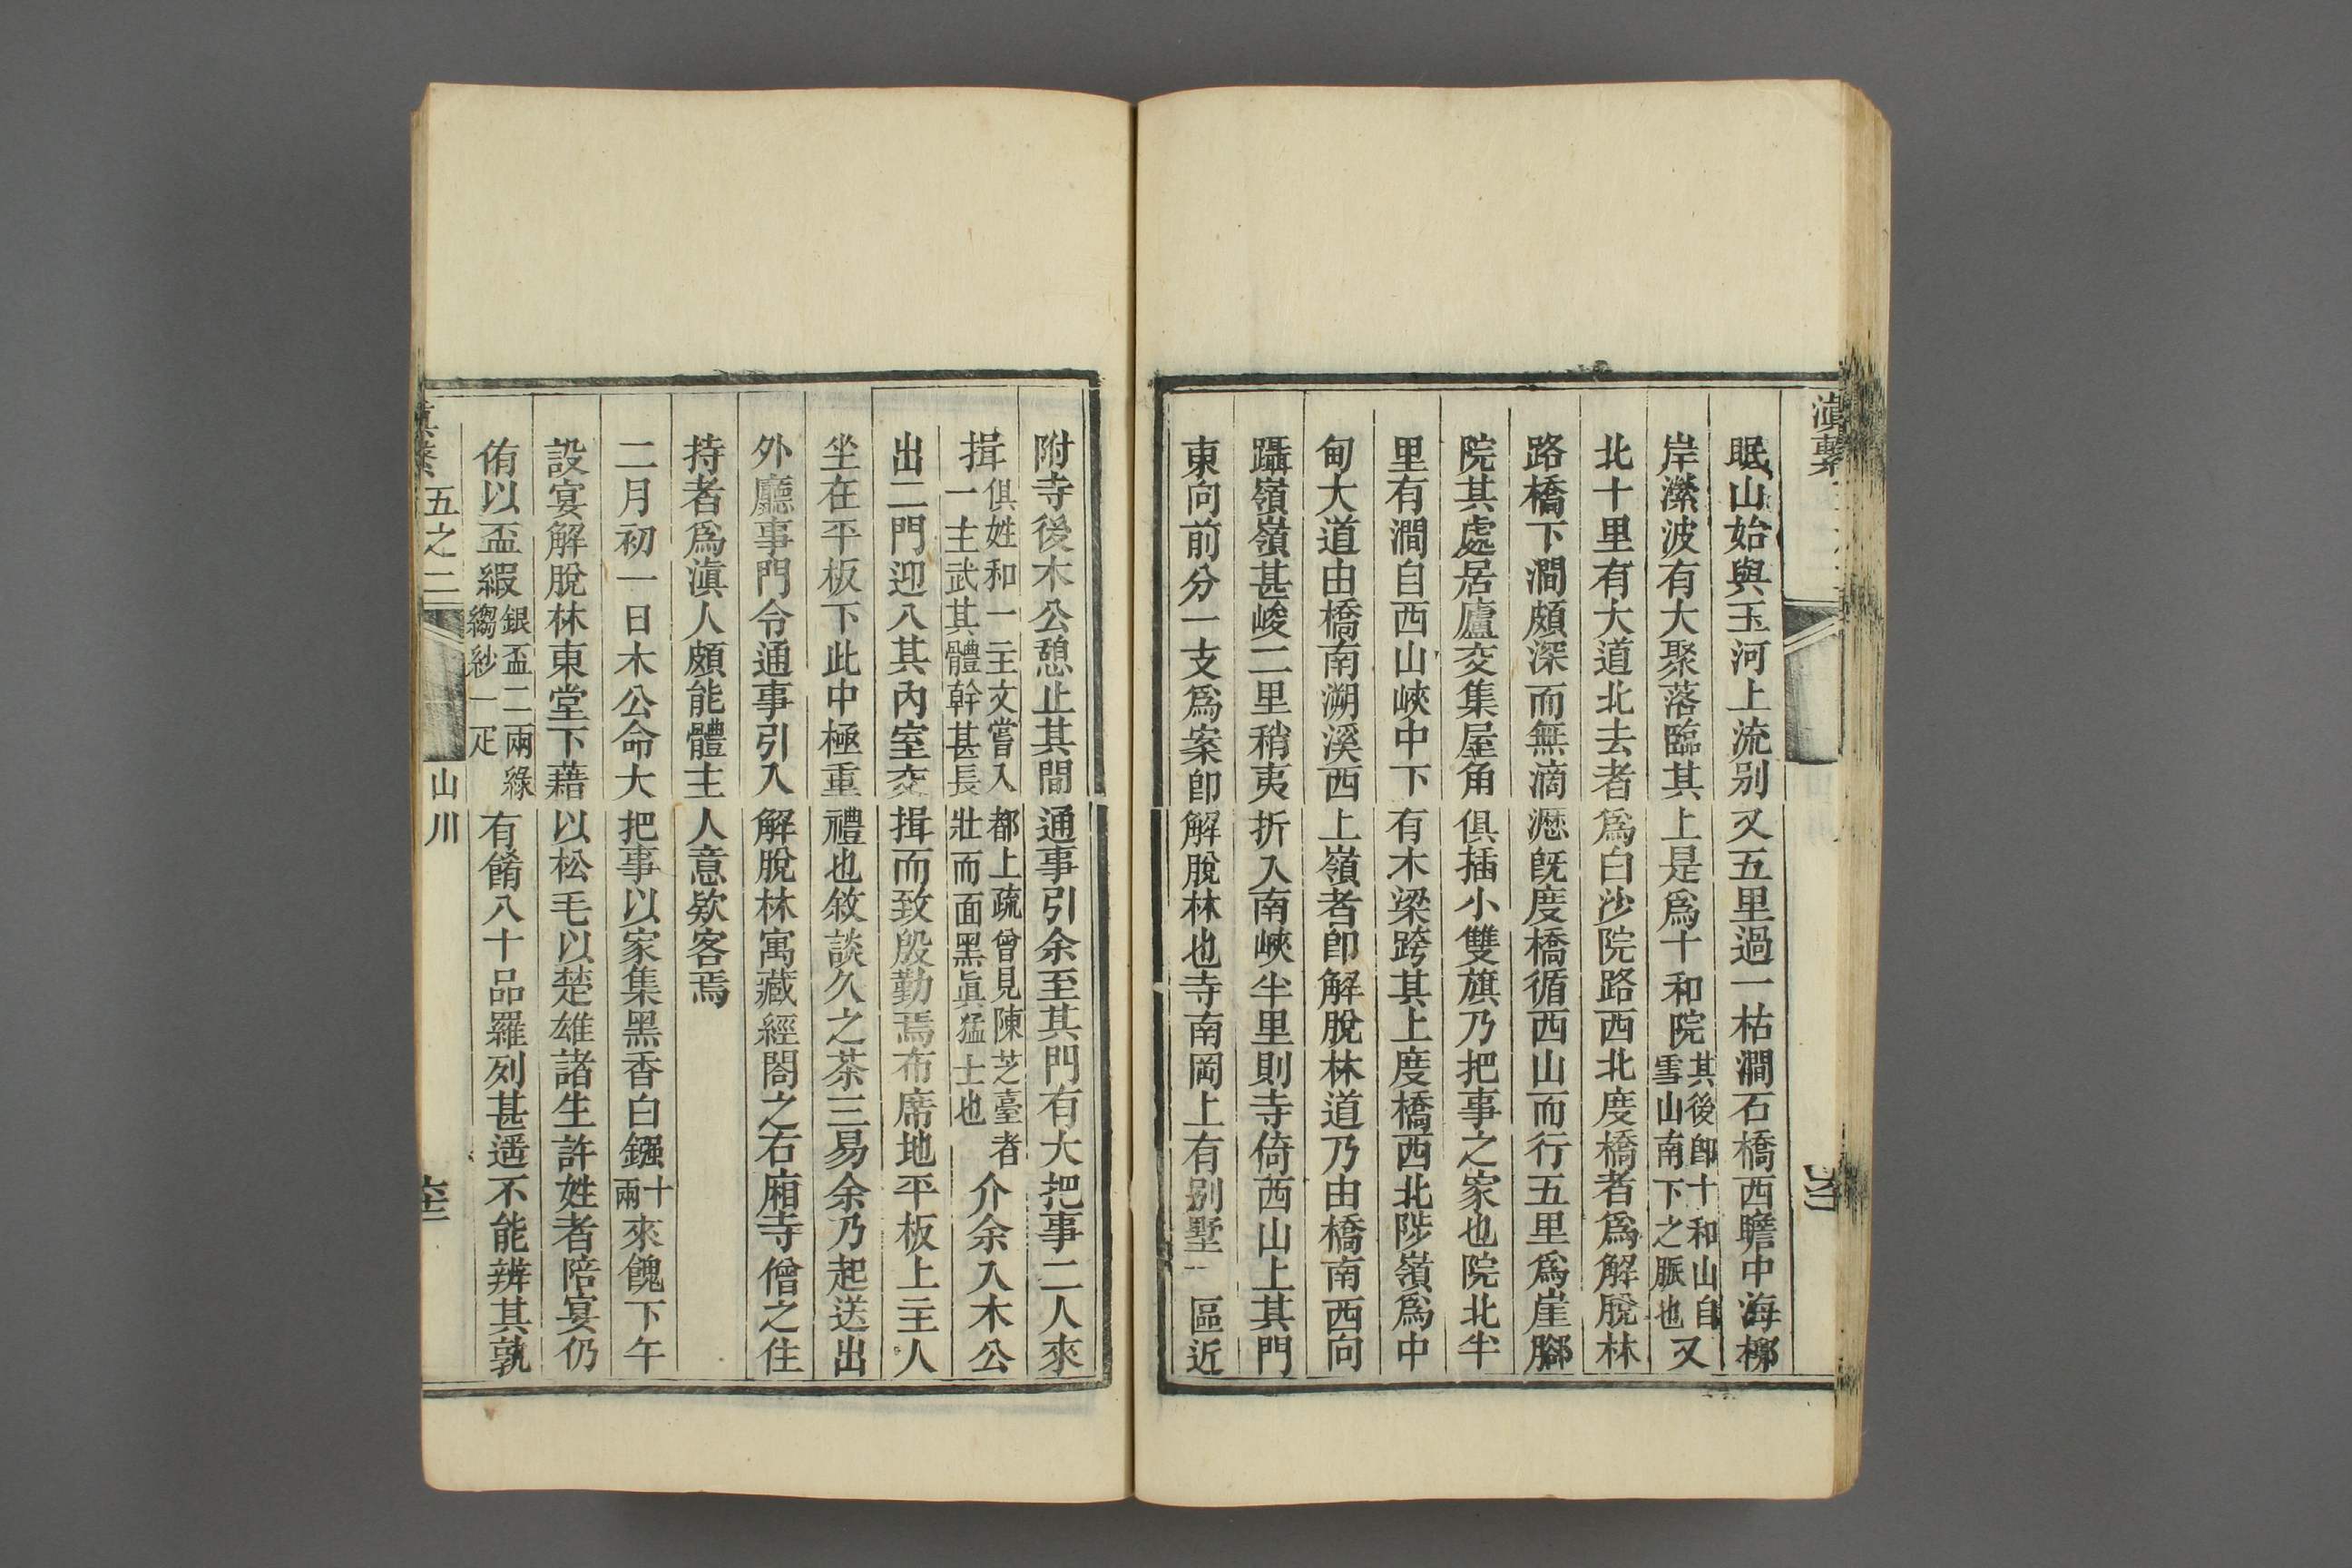 滇繫
眠山始與玉河上流别又五里過一枯澗石橋西瞻中海柳
岸瀠波有大聚落臨其上是爲十和院其後卽十和山自雪山南下之脈也又
北十里有大道北去者爲白沙院路西北度橋者爲解脫林
路橋下澗頗深而無滴瀝旣度橋循西山而行五里爲崖腳
院其處居廬交集屋角俱插小雙旗乃把事之家也院北半
里有澗自西山峽中下有木梁跨其上度橋西北陟嶺爲中
甸大道由橋南溯溪西上嶺者卽解脫林道乃由橋南西向
躡嶺嶺甚峻二里稍夷折入南峽半里則寺倚西山上其門
東向前分一支爲案卽解脫林也寺南岡上有别墅一區近
附寺後木公憩止其間通事引余至其門有大把事二人來
揖俱姓和一主文嘗入都上疏曾見陳芝臺者一主武其體幹甚長壯而面黑眞猛士也介余入木公
出二門迎入其內室交揖而致殷勤焉布席地平板上主人
坐在平板下此中極重禮也敘談久之茶三易余乃起送出
外廳事門令通事引入解脫林寓藏經閣之右廂寺僧之住
持者爲滇人頗能體主人意欵客焉
二月初一日木公命大把事以家集黑香白鏹十兩來餽下午
設宴解脫林東堂下藉以松毛以楚雄諸生許姓者陪宴仍
侑以盃緞銀盃二兩綠縐紗一疋有餚八十品羅列甚遥不能辨其孰
滇繫 五之二 山川